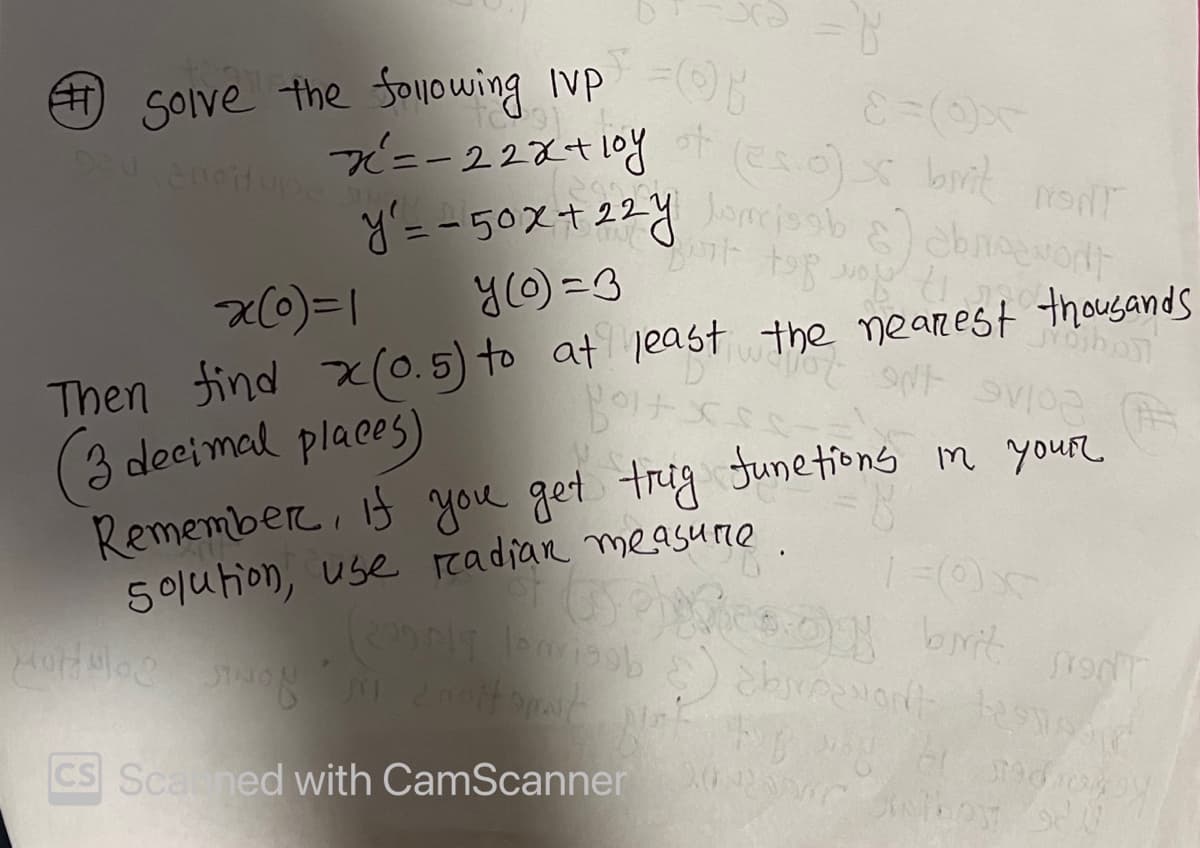 # solve the following IVP
x' = -22x + 10y
y' = -50x + 22y
x(0)=1 y(0)=3
Then find x(0.5) to at least the nearest thousands
(3 decimal places)
Remember, if you get trig functions in your
solution, use radian measure.
CS Scanned with CamScanner